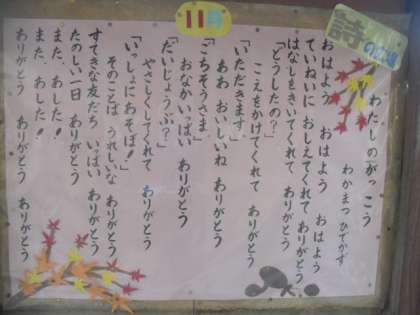 11月
詩の広場
わたしのがっこう
わかまつ ひでかず
おはよう おはよう おはよう
ていねいに おしえてくれて ありがとう
はなしをきいてくれて ありがとう
「どうしたの？」
こえをかけてくれて ありがとう
「いただきます。」
ああ おいしいね ありがとう
「ごちそうさま」
おなかいっぱい ありがとう
「だいじょうぶ？」
やさしくしてくれて ありがとう
「いっしょにあそぼ！」
そのことば うれしいな ありがとう
すてきな友だち いっぱい ありがとう
たのしい一日 ありがとう
また、あした！
また、あした！
ありがとう ありがとう ありがとう